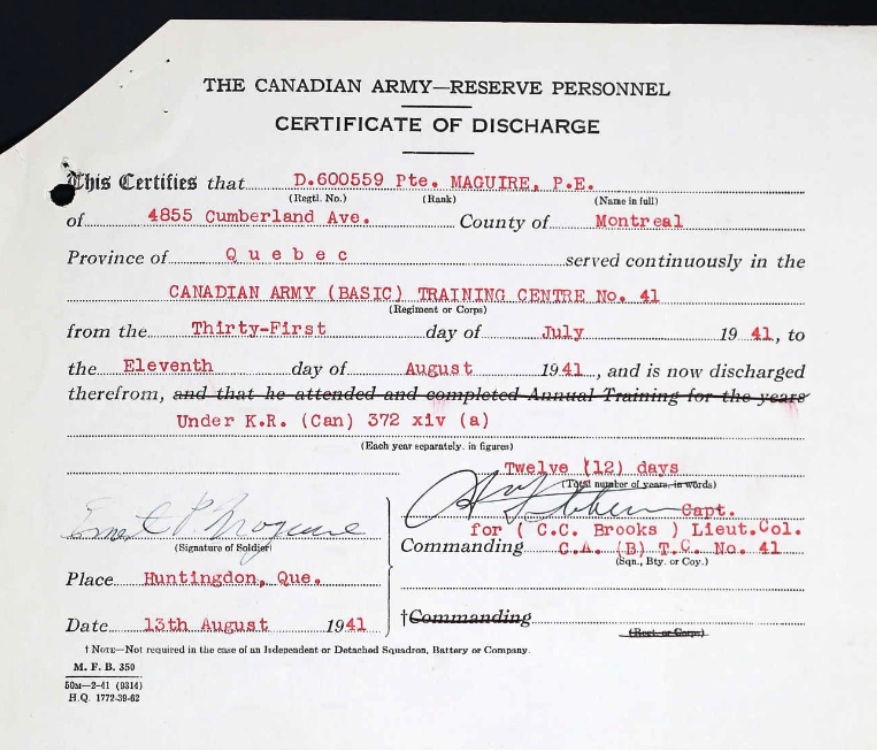 THE CANADIAN ARMY—RESERVE PERSONNEL
CERTIFICATE OF DISCHARGE
This Certifies that D.600559 Pte. MAGUIRE, P.E.
(Regtl. No.) (Rank) (Name in full)
of 4855 Cumberland Ave. County of Montreal
Province of Quebec served continuously in the
CANADIAN ARMY (BASIC) TRAINING CENTRE No. 41
(Regiment or Corps)
from the Thirty-First day of July 19 41, to
the Eleventh day of August 1941, and is now discharged
therefrom, and that he attended and completed Annual Training for the years
Under K.R. (Can) 372 xiv (a)
(Each year separately, in figures)
Twelve (12) days
(Total number of years, in words)
Capt.
for ( C.C. Brooks ) Lieut.Col.
Ernest P. Maguire
(Signature of Soldier)
Commanding C.A. (B) T.C. No. 41
(Sqn., Bty. or Coy.)
Place Huntingdon, Que.
Date 13th August 1941
†Commanding
(Regt. or Corps)
† NOTE—Not required in the case of an Independent or Detached Squadron, Battery or Company.
M. F. B. 350
50M—2-41 (9314)
H.Q. 1772-39-62